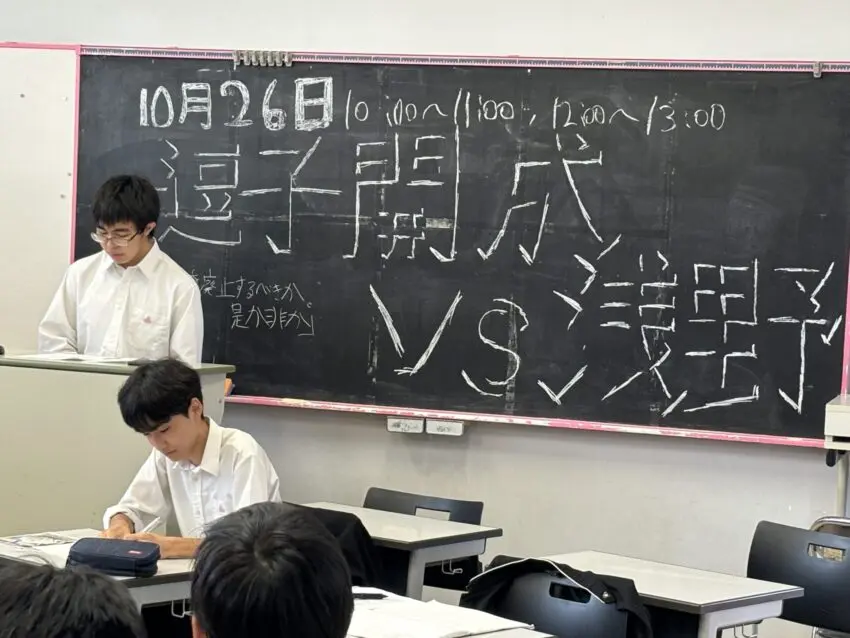 10月26日 10:00〜11:00, 12:00〜13:00
逗子開成
VS 浅野
廃止するべきか、
是か非か」